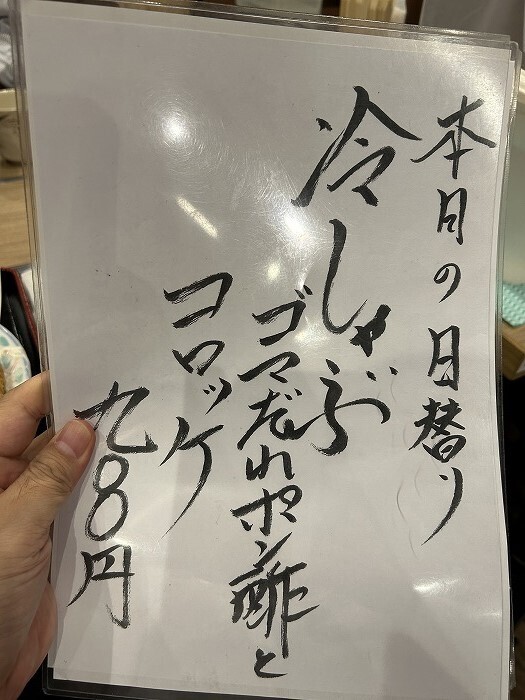 本日の日替り
冷しゃぶ
ゴマだれポン酢と
コロッケ
九8円